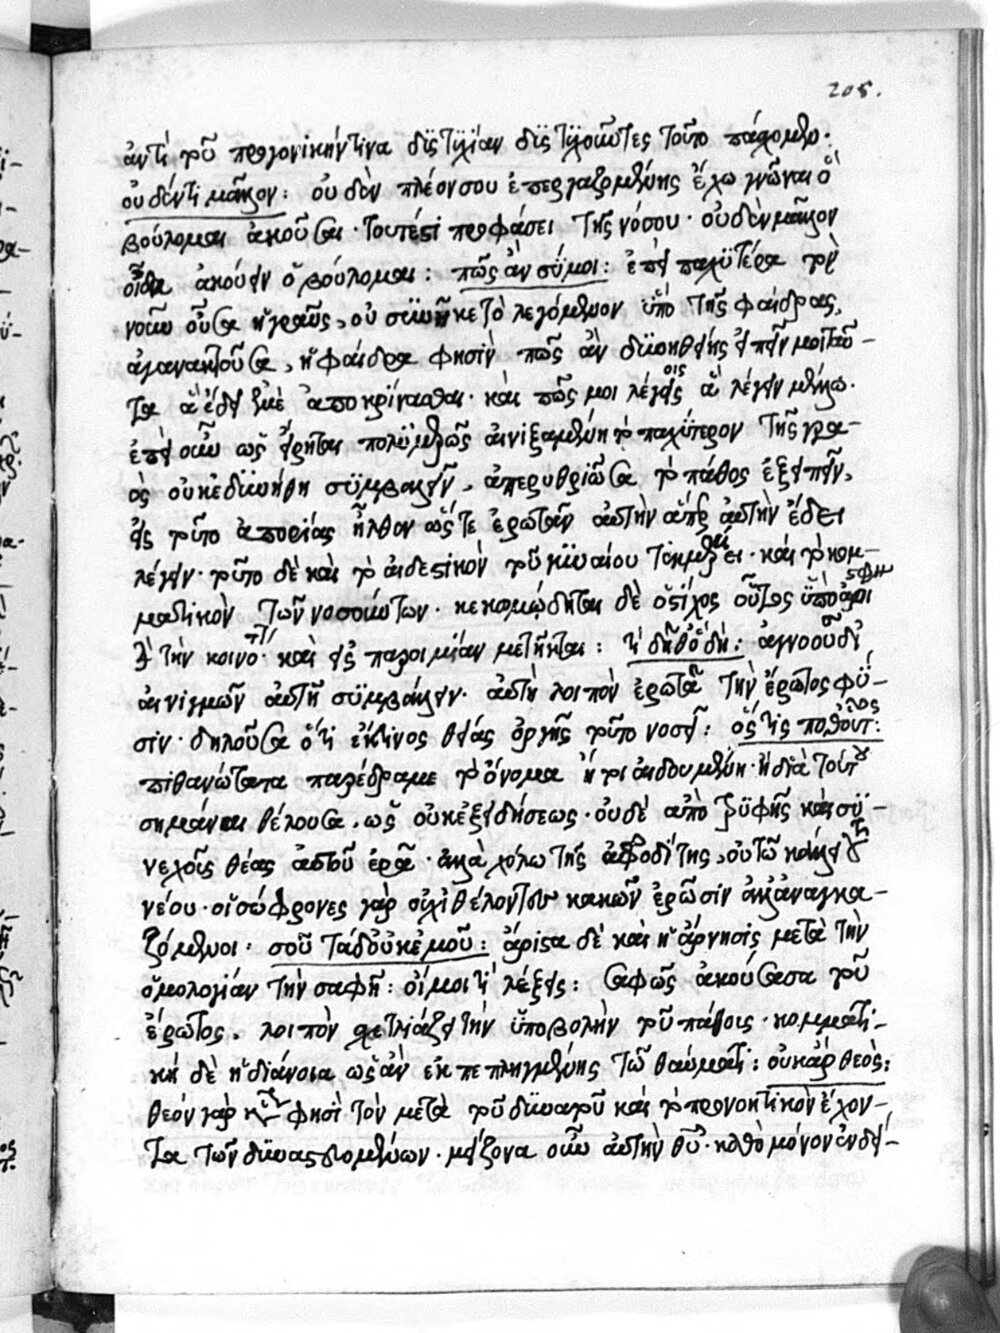 205.
ἀντὶ τοῦ προγονικήν τινα δυστυχίαν δυστυχοῦντες τοῦτο πάσχομεν·
οὐδέν τι μᾶλλον: οὐδὲν πλέον σου ἐπεργαζομένης ἔχω γνῶναι ὃ
βούλομαι ἀκοῦσαι· τουτέστι προφάσει τῆς νόσου· οὐδὲν μᾶλλον
οἶδα ἀκούειν ὃ βούλομαι: πῶς ἂν σύ μοι: ἐπεὶ παχυτέρα τὸν
νοῦν οὖσα ἡ γραῦς, οὐ συνῆκε τὸ λεγόμενον ὑπὸ τῆς φαίδρας,
ἀγανακτοῦσα, ἡ φαίδρα φησὶν πῶς ἂν διανοηθείης εἰπεῖν μοι ταῦ-
τα ἃ ἔδει ἐμὲ ἀποκρίνασθαι· καὶ πῶς μοι λέγοις ἃ λέγειν μέλλω·
ἐπεὶ οὖν ὡς εἴρηται αἰνιξαμένη τὸ παχύτερον τῆς γρα-
ὸς οὐκ ἐδυνήθη συμβαλεῖν, ἀπερυθριῶσα τὸ πάθος ἐξειπεῖν,
εἰς τοῦτο ἀπορίας ἦλθον ὥστε ἐρωτᾶν αὐτὴν ἅπερ αὐτὴν ἔδει
λέγειν· τοῦτο δὲ καὶ τὸ αἰδεστικὸν τοῦ γυναίου τεκμαίρει· καὶ τὸ κομ-
ματικὸν τῶν νοσούντων· κεκωμῴδηται δὲ ὁ στίχος οὗτος ὑπὸ ἀριστοφάν
διὰ τὴν κοινότητ· καὶ εἰς παροιμίαν μετῆκται: τί δῆθ᾽ ὃ δή: ἀγνοοῦσα
αἰνιγμῶν αὐτῇ συμβάλλειν· αὐτὴ λοιπὸν ἐρωτᾷ τὴν ἔρωτος φύ-
σιν· δηλοῦσα ὅτι ἐκεῖνος θείας ὀργῆς τοῦτο νοσεῖ: ὅστις ποθ᾽ οὗτος:
πιθανώτατα παρέδραμε τὸ ὄνομα ἤτοι αἰδουμένη· ἢ διὰ τούτου
σημᾶναι θέλουσα, ὡς οὐκ ἐξ εἰδήσεως· οὐδὲ ἀπὸ τρυφῆς καὶ συ-
νεχοῦς θέας αὐτοῦ ἐρᾷ· ἀλλὰ χόλῳ τῆς ἀφροδίτης,
νέου· οἱ σώφρονες γὰρ οὐχὶ θέλοντες κακῶν ἐρῶσιν ἀλλ᾽ ἀναγκα-
ζόμενοι· σοῦ τάδ᾽ οὐκ ἐμοῦ: ἀρίστα δὲ καὶ ἡ ἄρνησις μετὰ τὴν
ὁμολογίαν τὴν σαφῆ: οἴμοι τί λέξεις: σαφῶς ἀκούσασα τοῦ
ἔρωτος, λοιπὸν σχετλιάζει τὴν ὑποβολὴν τοῦ πάθους· κομματι-
κὴ δὲ ἡ διάνοια ὡς ἂν ἐκπεπληγμένης τῷ θαύματι: οὐκ ἄρ θεός:
θεὸν γὰρ φησὶ τὸν μετὰ τοῦ δύνασθαι καὶ τὸ προνοητικὸν ἔχον-
τα τῶν δυναστευομένων· μείζονα οὖν αὐτὴν θεοῦ· καθὸ μόνον ἐνδεί-